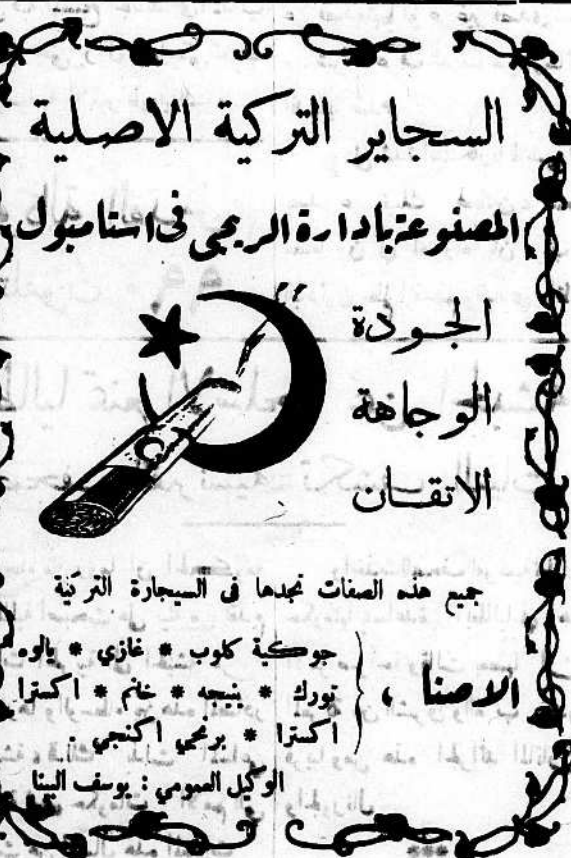 السجاير التركية الاصلية
المصنوعة بادارة الريجي فى استامبول
الجودة
الوجاهة
الاتقان
جميع هذه الصفات نجدها فى السيجارة التركية
الاصنا ،
جوكية كلوب * غازي * يالوه
تورك * ينيجه * خانم * اكسترا
اكسترا * برنجي اكنجي .
الوكيل العمومي : يوسف البينا